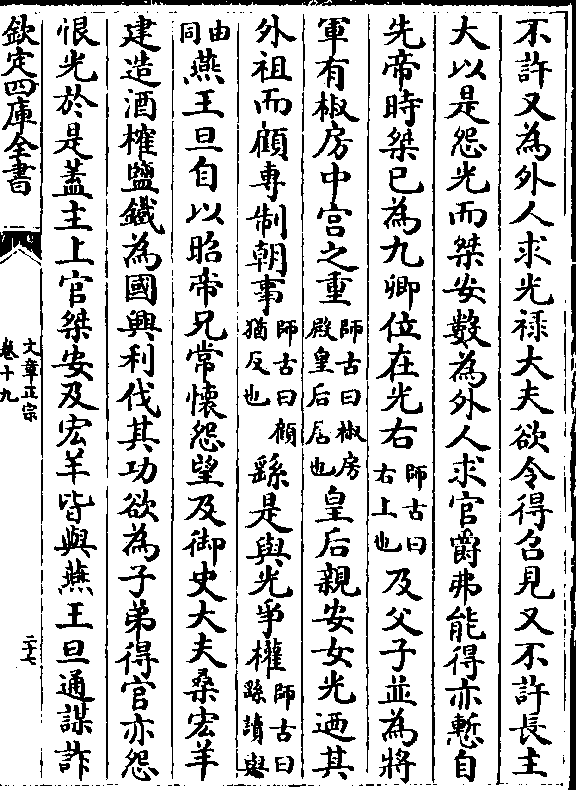 不許又為外人求光禄大夫欲令得召見又不許長主
大以是怨光而桀安數為外人求官爵弗能得亦慙自
先帝時桀已為九卿位在光右師古曰右上也及父子並為將
軍有椒房中宫之重師古曰椒房殿皇后居也皇后親安女光廼其
外祖而顧専制朝事師古曰顧猶反也繇是與光爭權師古曰繇讀與
由同燕王旦自以昭帝兄常懐怨望及御史大夫桑宏羊
建造酒榷鹽鐵為國興利伐其功欲為子弟得官亦怨
恨光於是蓋主上官桀安及宏羊皆與燕王旦通謀詐
欽定四庫全書
文章正宗
卷十九
二十七